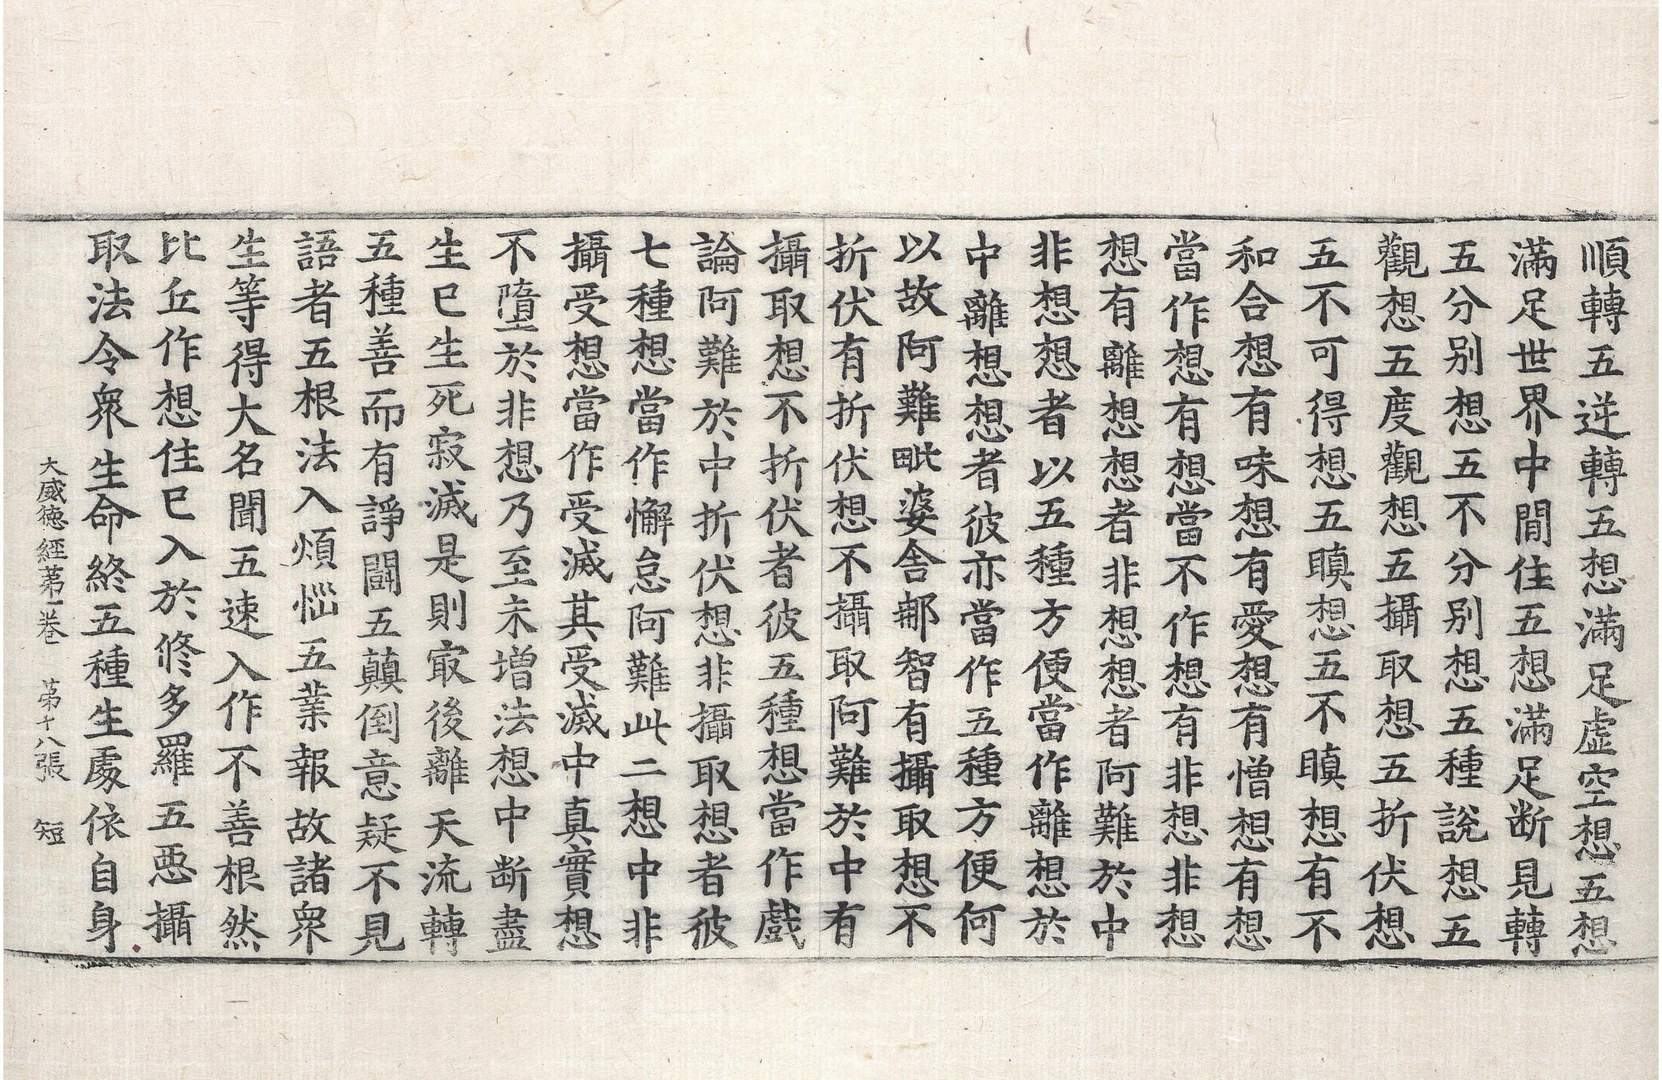 順轉五逆轉五想滿足虛空想五想
滿足世界中間住五想滿足断見轉
五分別想五不分別想五種說想五
觀想五度觀想五攝取想五折伏想
五不可得想五瞋想五不瞋想有不
和合想有味想有愛想有憎想有想
當作想有想當不作想有非想非想
想有離想想者非想想者阿難於中
非想想者以五種方便當作離想於
中離想想者彼亦當作五種方便何
以故阿難毗婆舍那智有攝取想不
折伏有折伏想不攝取阿難於中有
攝取想不折伏者彼五種想當作戲
論阿難於中折伏想非攝取想者彼
七種想當作懈怠阿難此二想中非
攝受想當作受滅其受滅中真實想
不墮於非想乃至未增法想中断盡
生巳生死寂滅是則㝡後離天流轉
五種善而有諍鬪五顛倒意疑不見
語者五根法入煩惱五業報故諸衆
生等得大名聞五速入作不善根然
比丘作想住巳入於修多羅五惡攝
取法令衆生命終五種生處依自身
大威德經苐一卷 苐十八張 短